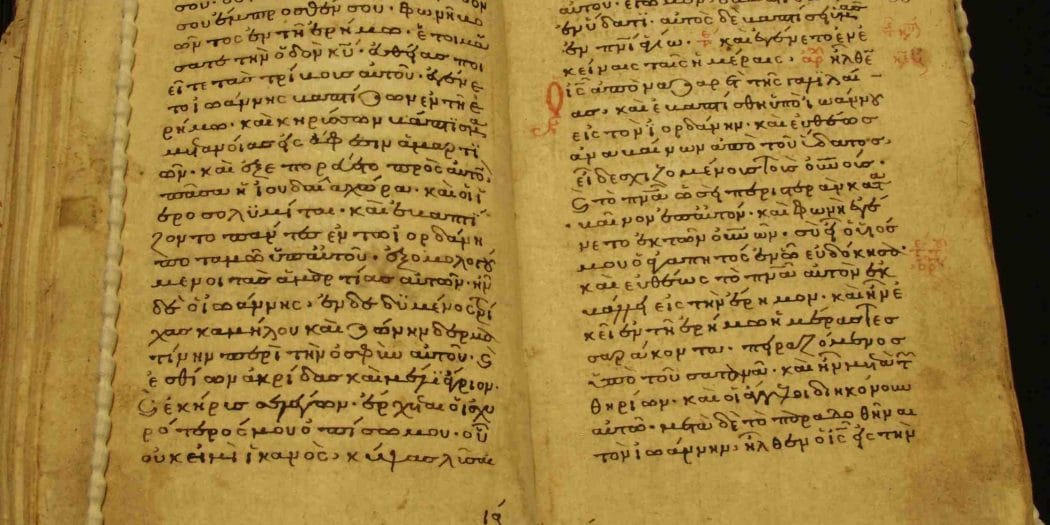 σου ἔμπροσθέν σου· φωνὴ βο
ῶντος ἐν τῆ ἐρήμω· ἑτοιμά
σατε τὴν ὁδὸν κῦ· εὐθείας ποι
εῖτε τὰς τρίβους αὐτοῦ· ἐγένε
το ἰωάννης βαπτίζων ἐν τῆ ἐ
ρήμω· καὶ κηρύσσων βάπτισμα
μετανοίας εἰς ἄφεσιν ἁμαρτι
ῶν· καὶ ἐξεπορεύετο πρὸς αὐτὸν
πᾶσα ἡ ἰουδαία χώρα· καὶ οἱ ἱ
εροσολυμῖται· καὶ ἐβαπτί
ζοντο πάντες ἐν τῶ ἰορδάνη
ποταμῶ ὑπ' αὐτοῦ· ἐξομολογού
μενοι τὰς ἁμαρτίας αὐτῶν· ἦν
δὲ ὁ ἰωάννης· ἐνδεδυμένος τρί
χας καμήλου καὶ ζώνην δερμα
τίνην περὶ τὴν ὀσφὺν αὐτοῦ· καὶ
ἐσθίων ἀκρίδας καὶ μέλι ἄγριον·
καὶ ἐκήρυσσε λέγων· ἔρχεται ὁ ἰσχυ
ρότερός μου ὀπίσω μου· οὗ
οὐκ εἰμὶ ἱκανὸς· κύψας λῦσαι
ἐν ὕδατι· αὐτὸς δὲ βαπτίσει ὑμᾶς
ἐν πνι ἁγίω· καὶ ἐγένετο ἐν ἐ
κείναις ταῖς ἡμέραις· ἦλθεν
ὁ ις ἀπὸ ναζαρὲτ τῆς γαλιλαί
ας· καὶ ἐβαπτίσθη ὑπὸ ἰωάννου
εἰς τὸν ἰορδάνην· καὶ εὐθέως
ἀναβαίνων ἀπὸ τοῦ ὕδατος·
εἶδε σχιζομένους τοὺς οὐνούς·
καὶ τὸ πνα ὡσεὶ περιστερὰν κατα
βαῖνον ἐπ' αὐτόν· καὶ φωνὴ ἐγέ
νετο ἐκ τῶν οὐνῶν· σὺ εἶ ὁ υἱός
μου ὁ ἀγαπητὸς ἐν ὧ εὐδόκησα·
καὶ εὐθέως τὸ πνα αὐτὸν ἐκ
βάλλει εἰς τὴν ἔρημον· καὶ ἦν ἐ
κεῖ ἐν τῆ ἐρήμω ἡμέρας τεσ
σαράκοντα· πειραζόμενος
ὑπὸ τοῦ σατανᾶ· καὶ ἦν μετὰ τῶν
θηρίων· καὶ οἱ ἄγγελοι διηκόνουν
αὐτῶ· μετὰ δὲ τὸ παραδοθῆναι
τὸν ἰωάννην, ἦλθεν ὁ ις εἰς τὴν